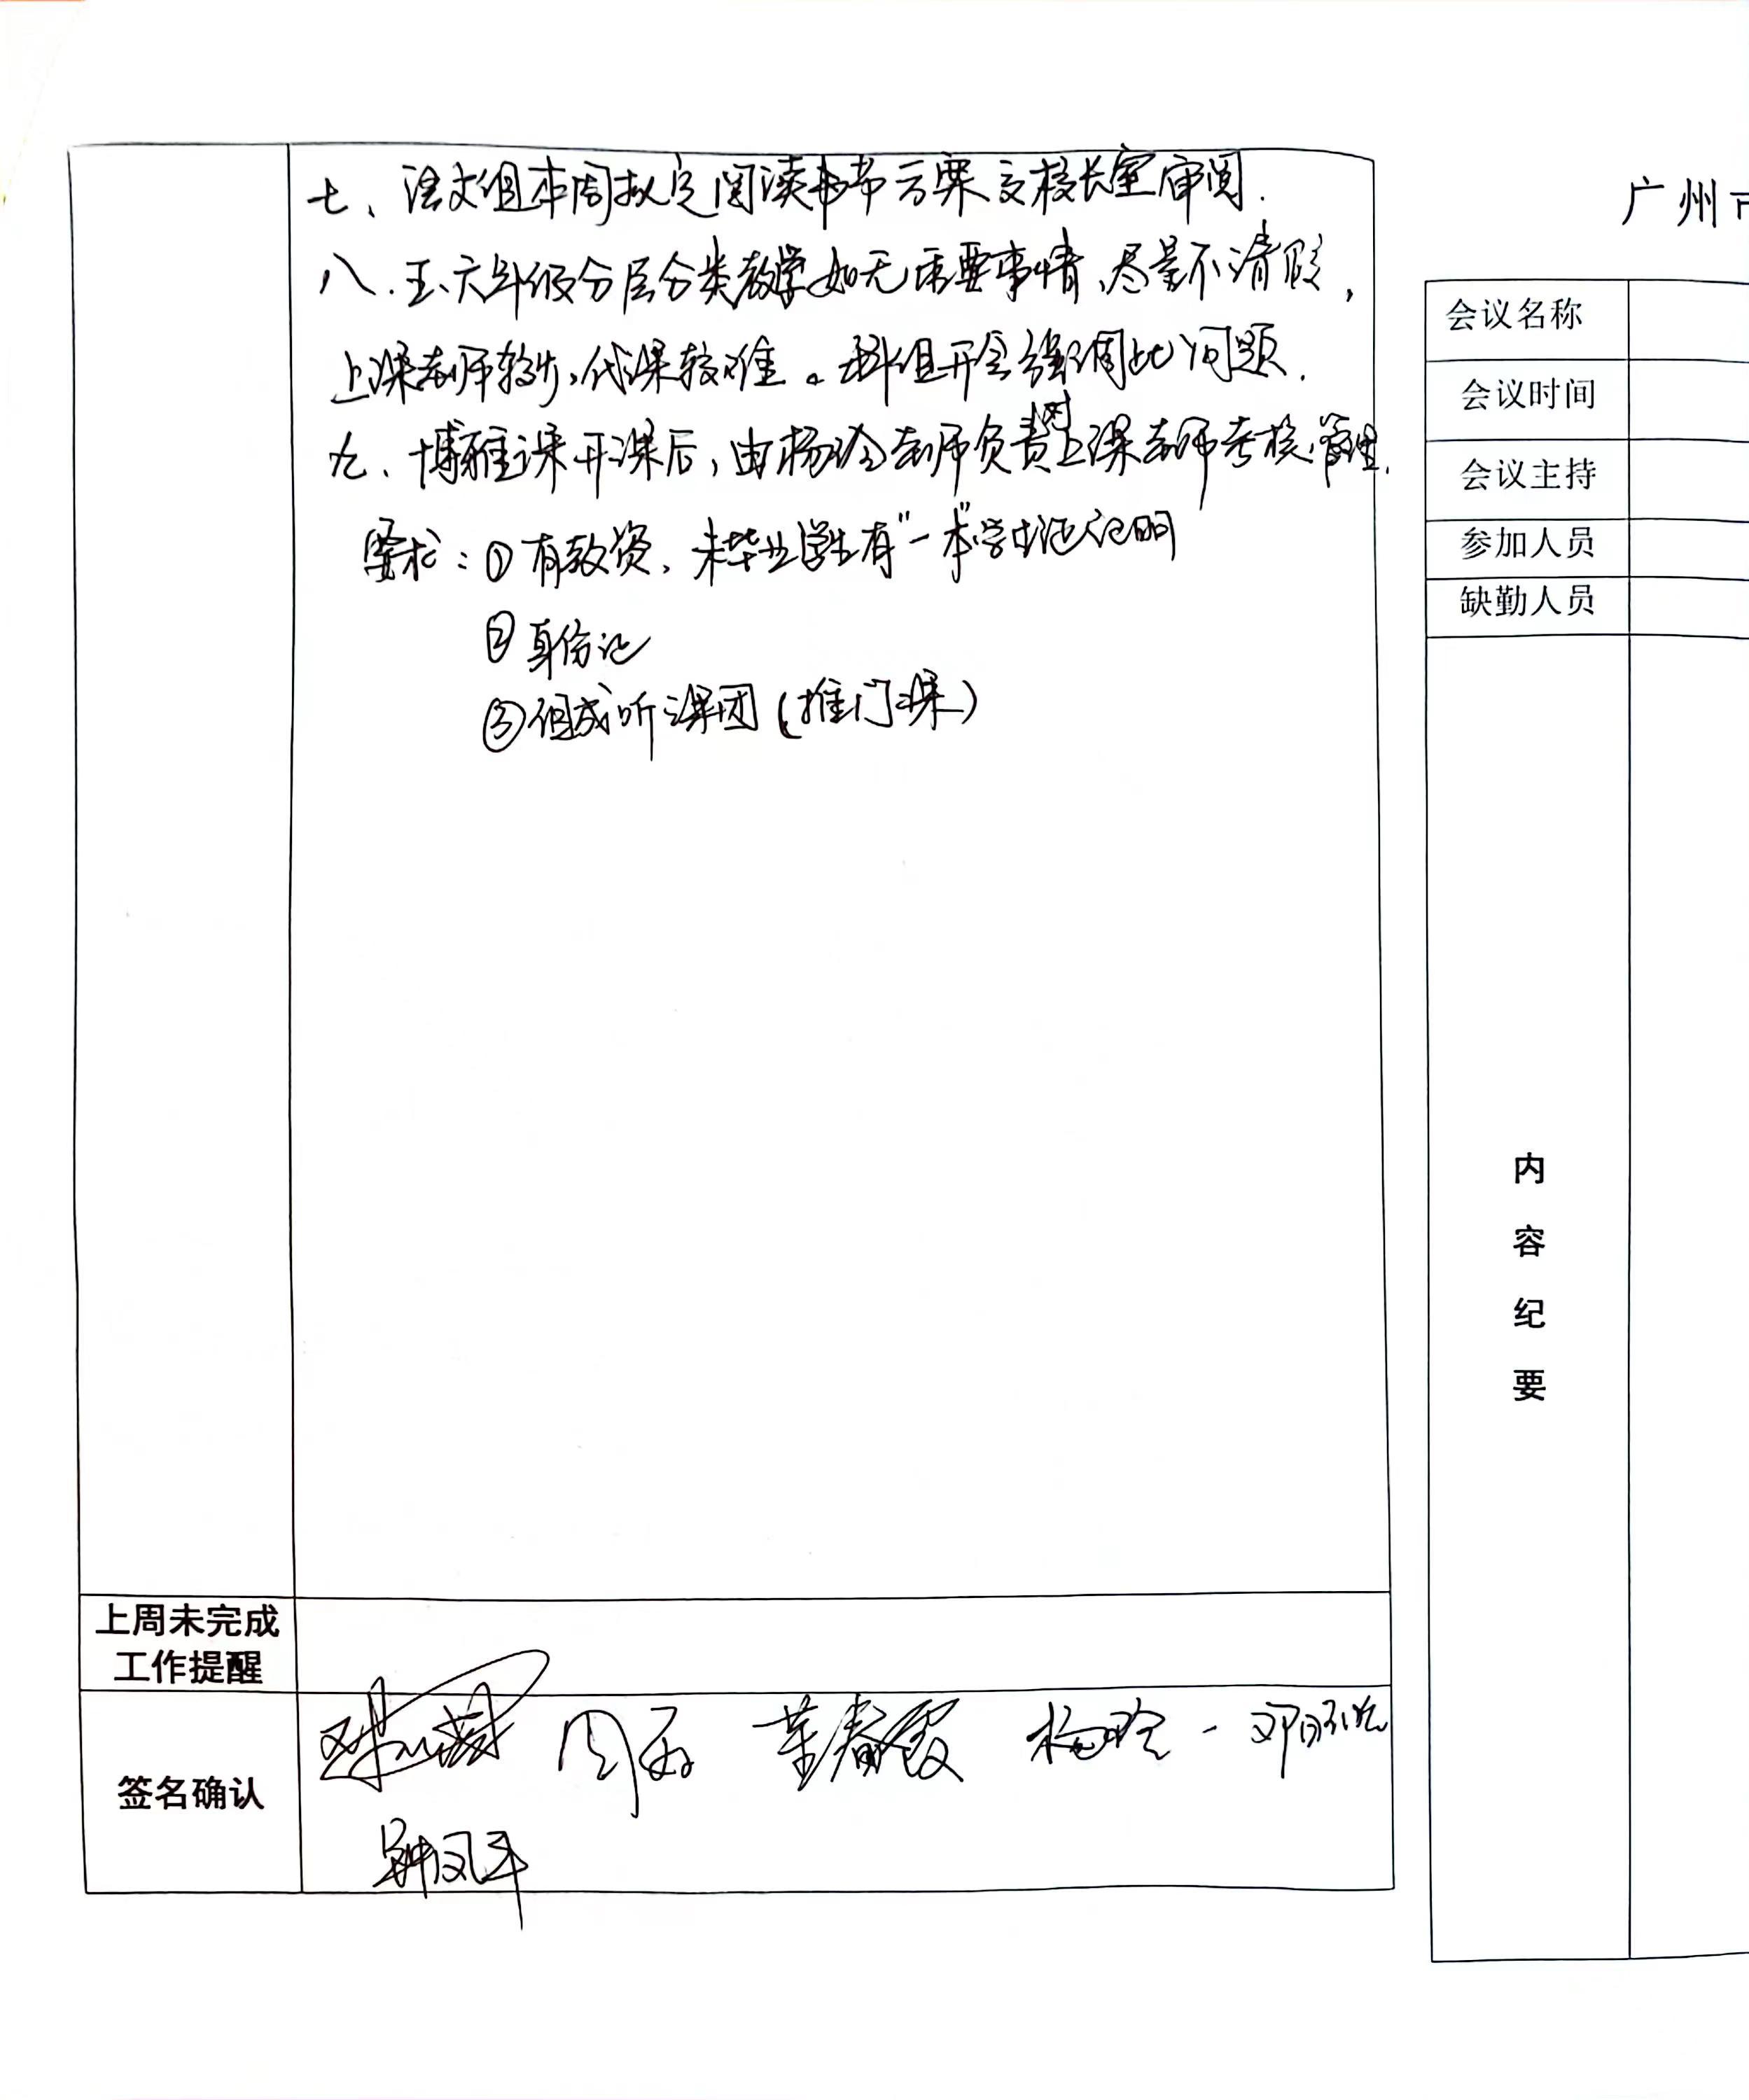 七、语文组本周拟定阅读书节方案交校长室审阅.
八.五、六年级分层分类教学如无重要事情,尽量不请假,
上课老师较少,代课较难。科组开会强调此问题.
九、博雅课开课后,由杨玲老师负责对上课老师考核、管理.
要求:①有教资,未毕业学生有"一本"学生证证明
②身份证
③组成听课团(推门课)
上周未完成
工作提醒
签名确认
周 董春霞 杨玲 邓
钟凤平
广州市
会议名称
会议时间
会议主持
参加人员
缺勤人员
内
容
纪
要